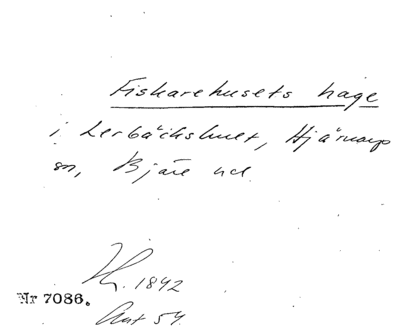 Fiskarehusets hage
i Lerbäckshult, Hjärnarp
sn, Bjäre hd.
1842
Nr 7086.
Ant 54.